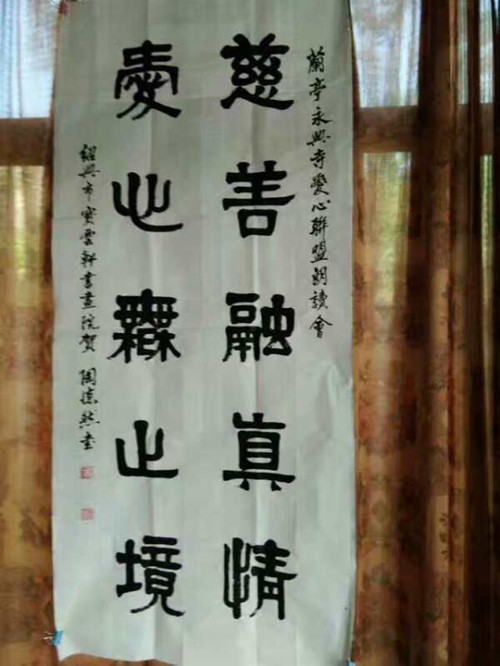 蘭亭永興寺愛心聯盟朗讀會
慈善融真情
愛心無止境
紹興市雲軒書畫院賀 陶德然書